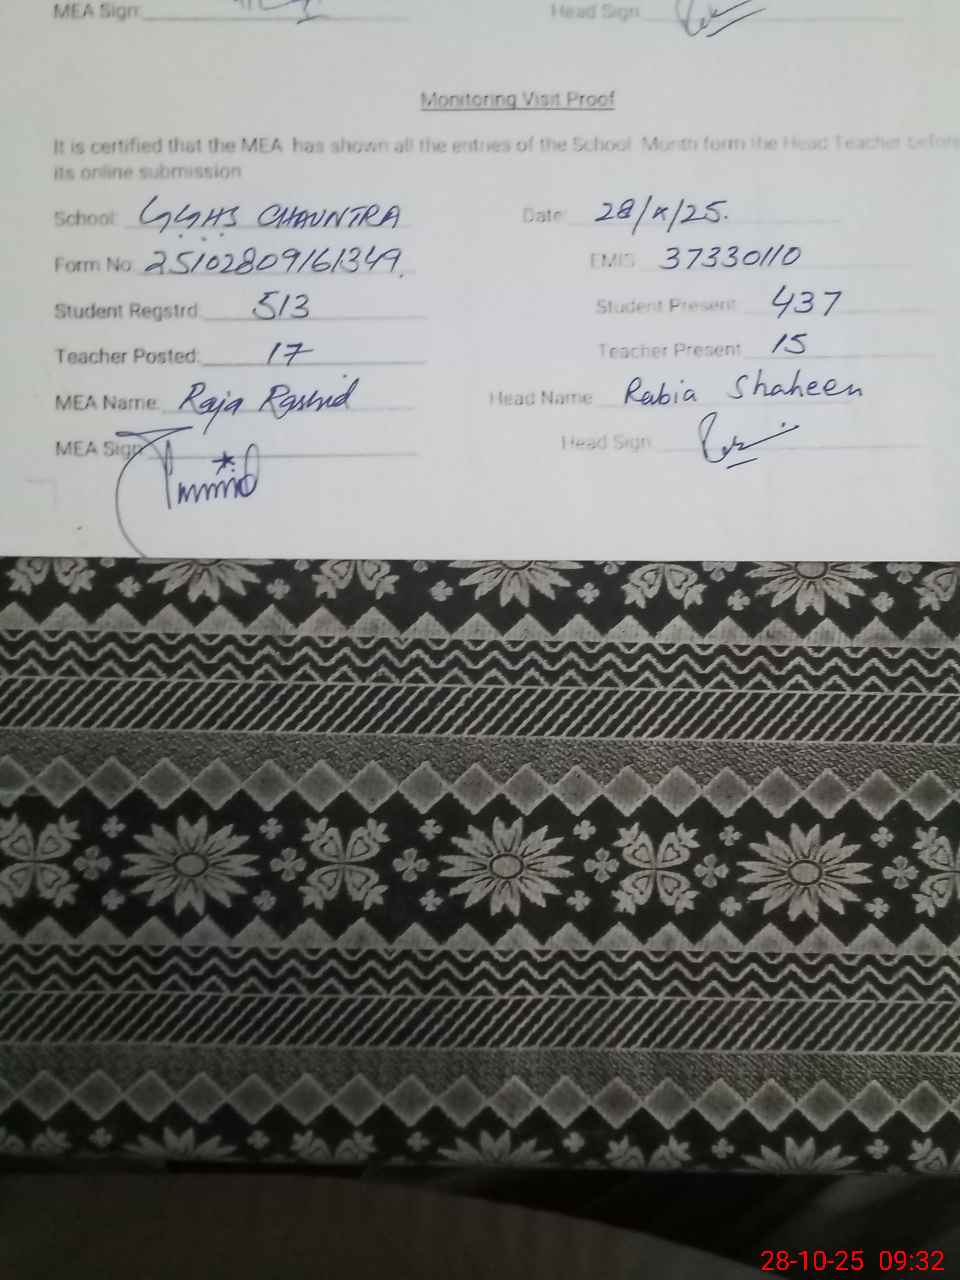 MEA Sign: Head Sign
Monitoring Visit Proof
It is certified that the MEA has shown all the entries of the School Month form the Head Teacher before
its online submission
School: GGHS CHAUNTRA Date: 28/X/25.
Form No: 25102809161349 EMIS 37330110
Student Regstrd: 513 Student Present 437
Teacher Posted: 17 Teacher Present 15
MEA Name: Raja Rashid Head Name Rabia Shaheen
MEA Sign Head Sign
28-10-25 09:32